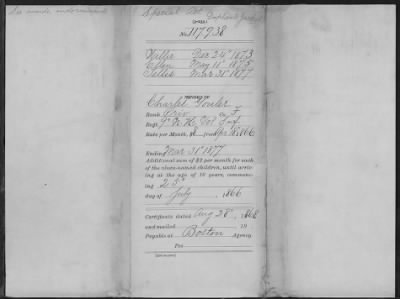 See inside endorsement
Special Act
No. 117,938
Willie Dec 24" 1873
Ellen May 11" 1875
Nellie Mar 31" 1877
Charles
Rank Priv Co. F
Regt. 9" N.H. Vol Inf
Rate per Month, $8 from Apr 18 1866
Ending Mar 31" 1877
Additional sum of $2 per month for each
of the above-named children, until arriv-
ing at the age of 16 years, commenc-
ing 25"
day of July , 1866
Certificate dated Aug 28 , 1868
and mailed 19 .
Payable at Boston Agency
For